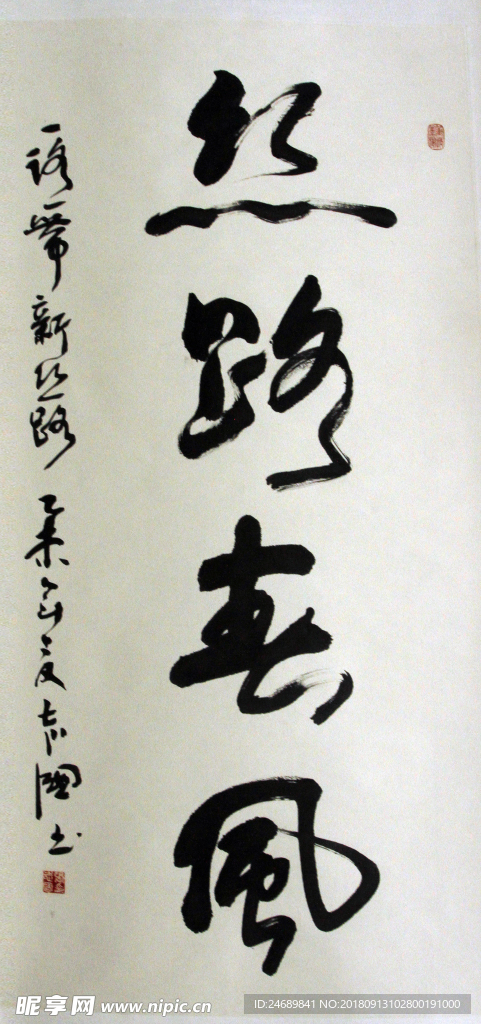 丝路春風
一路一带 新丝路 乙未年夏 志國书
昵享网 www.nipic.cn
ID:24689841 NO:20180913102800191000